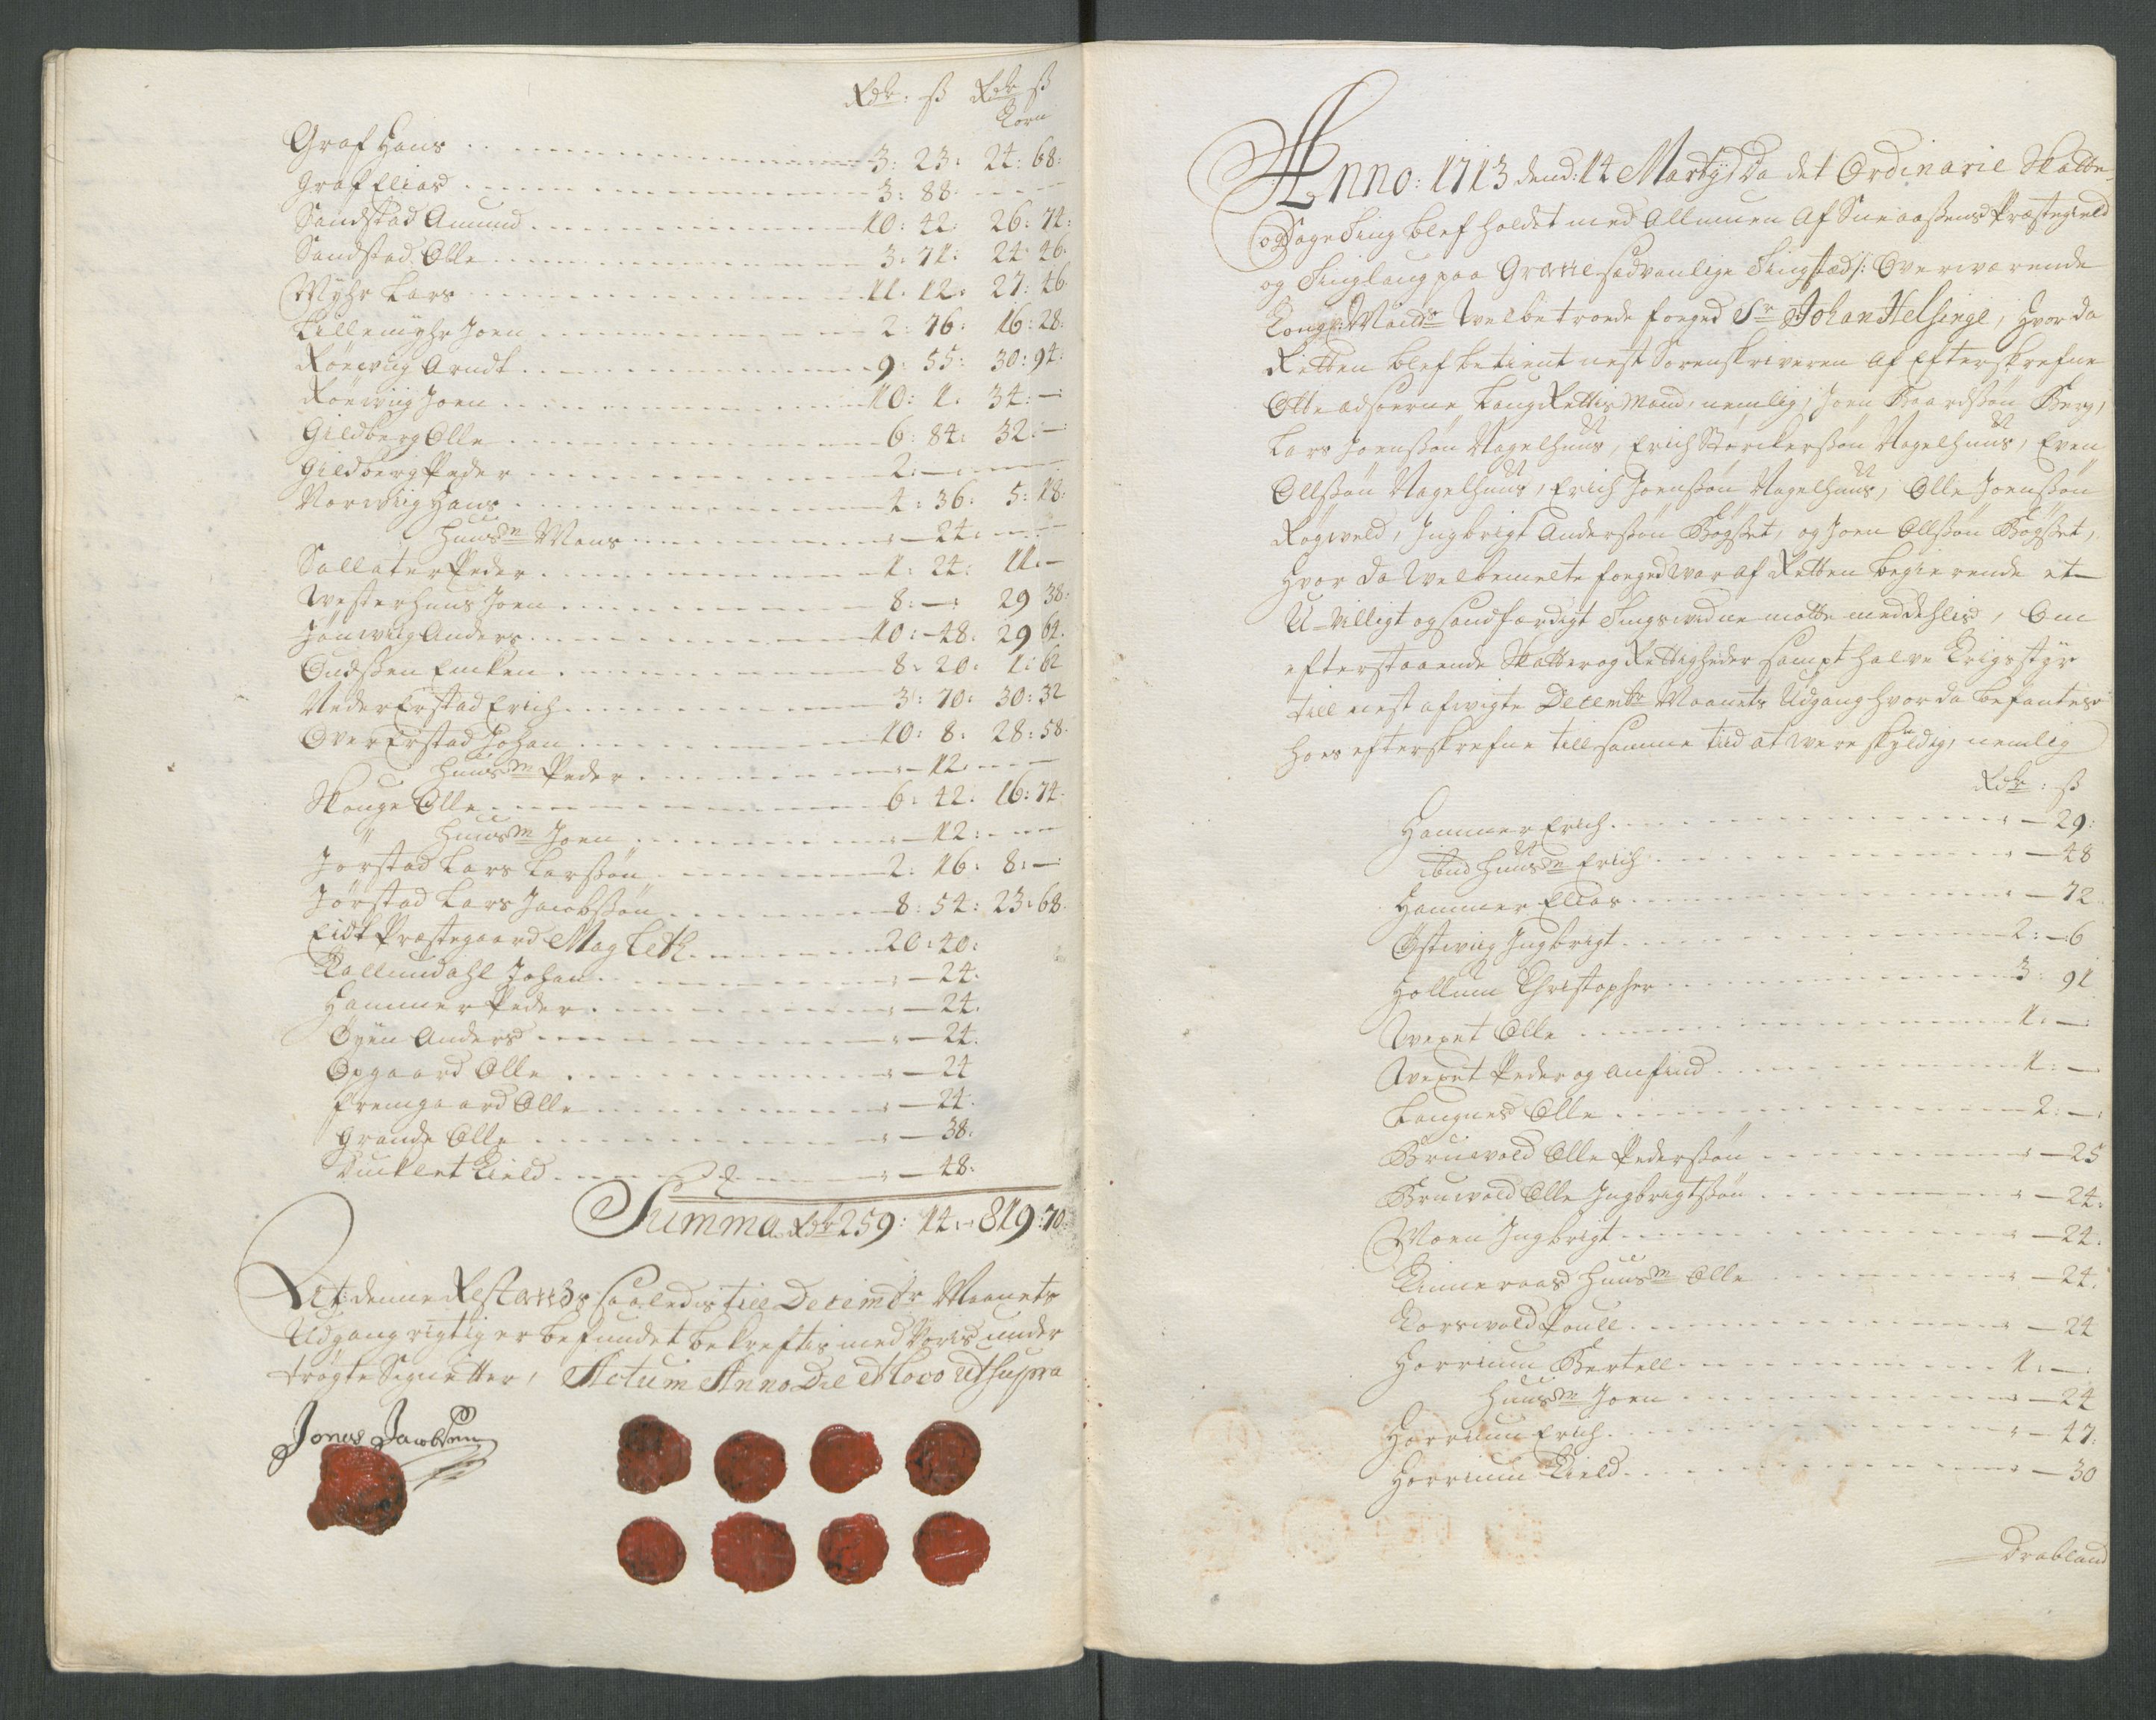 Rdr: ß Rdr ß
Korn
Graf Hans 3: 23: 24: 68:
Graf Elias 3: 88:
Sandstad Amund 10: 42: 26: 74:
Sandstad Olle 3: 71: 24: 46:
Myhr Lars 11: 12: 27: 46
Lillemyhr Joen 2: 76: 16: 28:
Röewiig Arndt 9: 55: 30: 94:
Röewiig Joen 10: 1: 34: —
Gildberg Olle 6: 84: 32: —
Gildberg Peder 2: —
Norwiig Hans 4: 36: 5: 18:
Huusm Mons — 24:
Sallater Peder 1: 24: 11: —
Westerhuus Joen 8: —: 29 38:
Jönwiig Anders 10: 48: 29 64:
Emken 8: 20: 1: 62
Neder Erstad Erich 3: 70: 30: 32
Over Erstad Johan 10: 8: 28: 58:
Huusm Peder — 12:
Skauge Olle 6: 42: 16: 74:
" Huusm Joen — 12:
Jörstad Lars Larssøn 2: 16: 8: —:
Jörstad Lars Jacobssøn 8: 54: 23: 68:
Eidt Præstegaard Mag Leth 20: 40:
Kallumdahl Johan — 24:
Hammer Peder — 24:
Öyen Anders — 24:
Opgaard Olle — 24
Fremgaard Olle — 24:
Grande Olle — 38:
Kield — 48:
Summa Rdr 259: 14: 819: 70:
At denne Restantz saaledis till Decembr Maanets
Udgang rigtig er befundet bekreftis med Voris under
trögte Signetter, Actum Anno Die et Loco Ut supra
Jonas Jacobsen
Anno: 1713 dend: 14 Martij Da det Ordinarie Skatte
og Sage Ting blef holdet med Allmuen Af Sneaasens Præstegield
og Tinglaug paa Grane sædvanlige Tingstæd /: Overwærende
Kongl: Maids Welbetroede foged Sr Johan Helsinge, Hvor da
Retten blef betient nest Sorenskriveren Af Efterskrefne
Otte edsoerne Laug Rettis Mænd, nemlig, Joen Baardssøn Berg,
Lars Joenssøn Nagelhuus, Erich Störckerssøn Nagelhuus, Even
Ollssøn Nagelhuus, Erich Joenssøn Nagelhuus, Olle Joenssøn
Rögweld, Ingbrigt Anderssøn Bögset, og Joen Ollssøn Bögset,
Hvor da Welbemelte foged War af Retten begierende et
U-Villigt og sandfærdigt Tingswidne motte meddehlis, Om
efterstaaende Skatter og Rettigheder sampt halve Krigsstyr
till nest afwigte Decembr Maanets Udgang Hvor da befantes
hos efterskrefne till samme tiid at were skyldig, nemlig
Rdr: ß
Hammer Erich — 29:
ibid Huusm Erich — 48
Hammer Elias — 72
Östwiig Ingbrigt 2: — 6
Hollum Christopher 3: 91
Wexet Olle 1: —
Wexet Peder og Anfind 1: —
Langnes Olle 2: —:
Bruwold Olle Pederssøn — 25
Bruwold Olle Ingbrigtssøn — 24:
Moen Ingbrigt — 24:
Kinneraas Huusm Olle — 24:
Korswold Poull — 24
Harrium Bertell 1: —:
Huusm Joen — 24
Harrium Erich — 47:
Harrium Kield — 30
Drabland